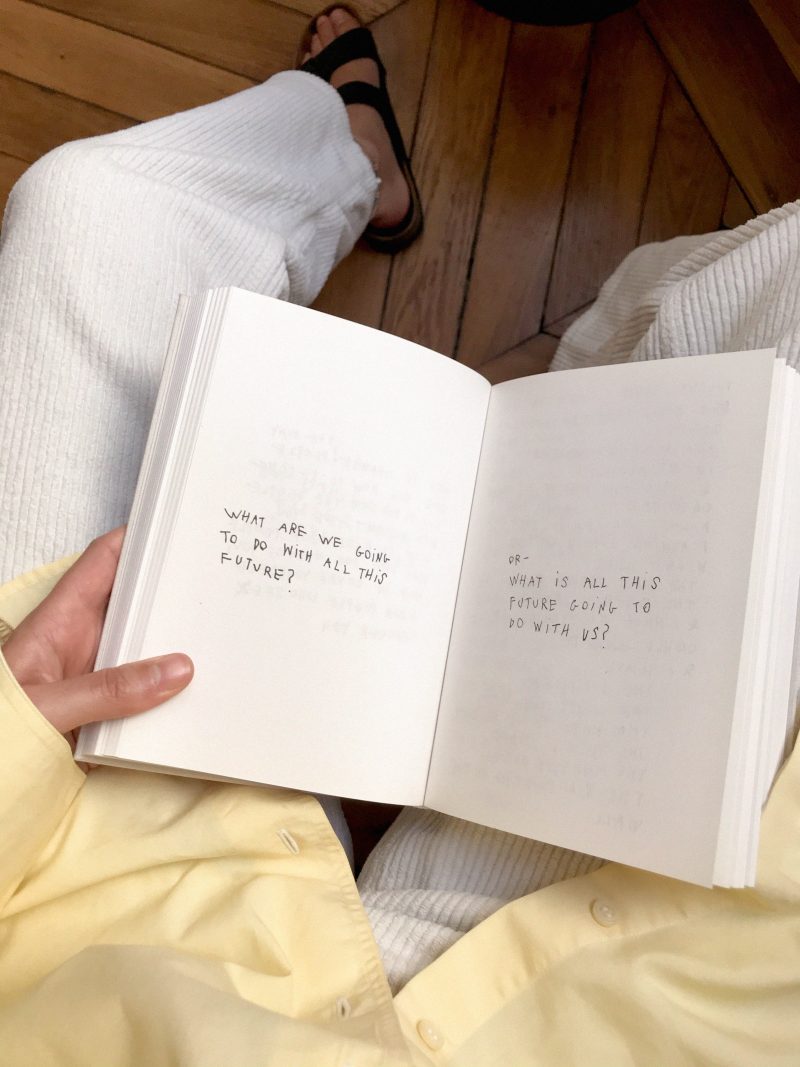 WHAT ARE WE GOING
TO DO WITH ALL THIS
FUTURE?
OR-
WHAT IS ALL THIS
FUTURE GOING TO
DO WITH US?